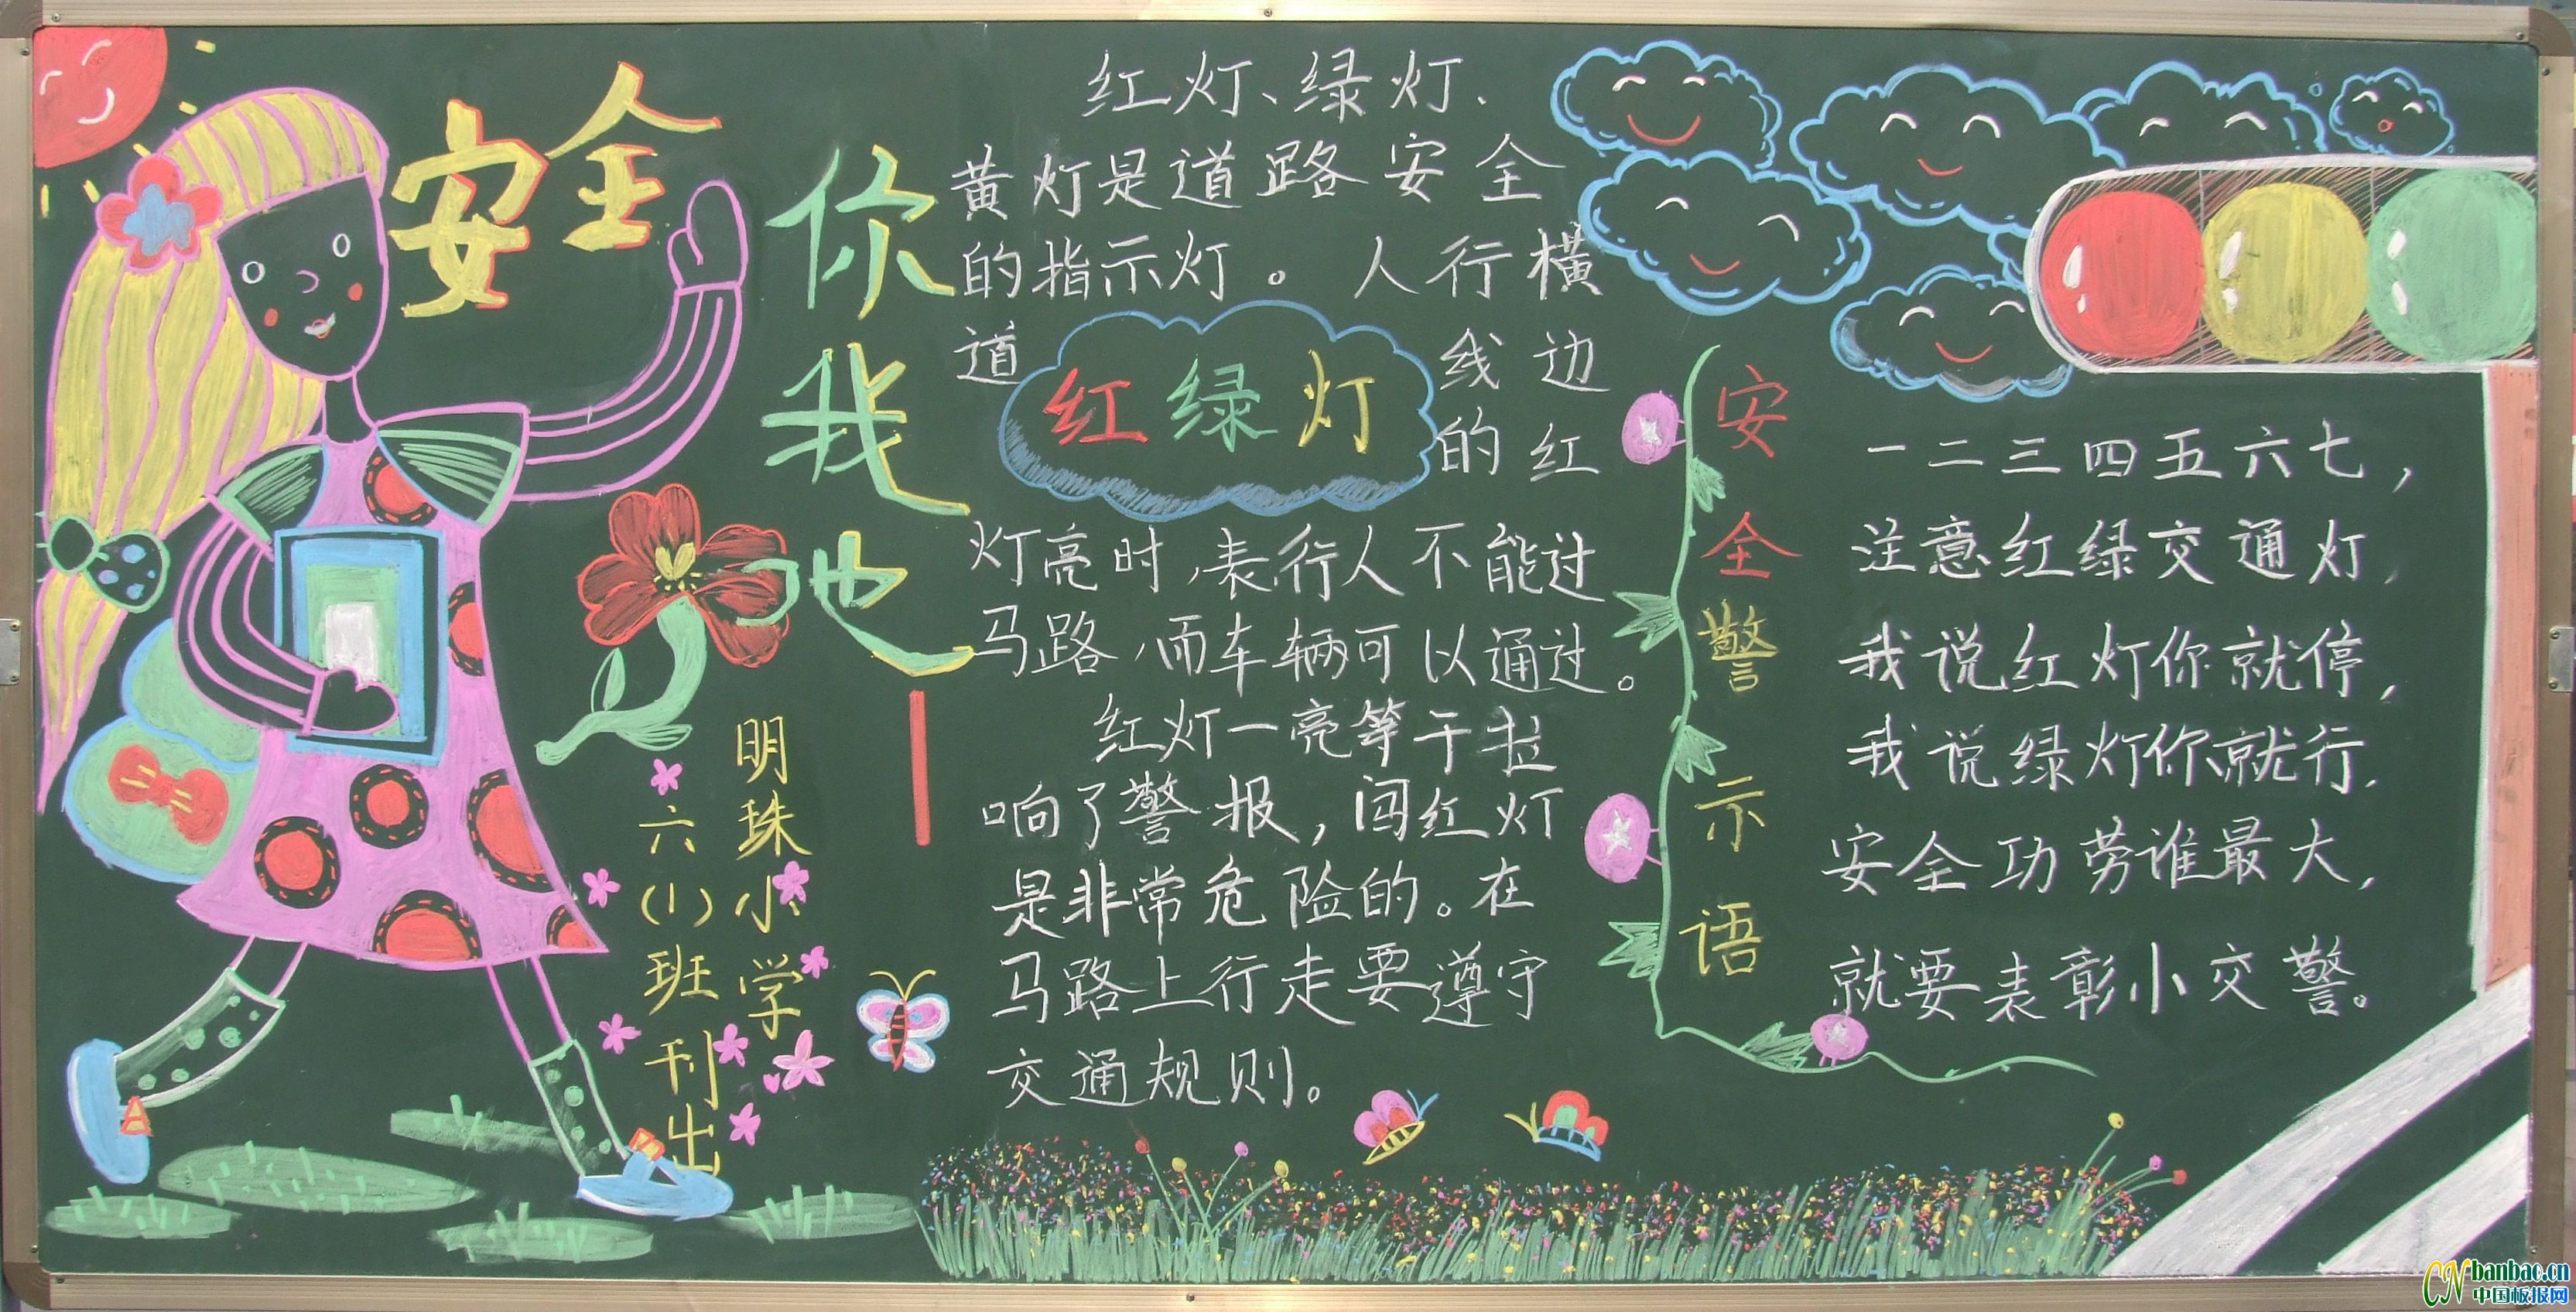 安全
你我他
明珠小学
六(1)班刊出
红绿灯
红灯、绿灯、
黄灯是道路安全
的指示灯。人行横
道线边
的红
灯亮时,表行人不能过
马路,而车辆可以通过。
红灯一亮等于拉
响了警报,闯红灯
是非常危险的。在
马路上行走要遵守
交通规则。
安全警示语
一二三四五六七,
注意红绿交通灯,
我说红灯你就停,
我说绿灯你就行.
安全功劳谁最大,
就要表彰小交警。
CN banbao.cn
中国板报网